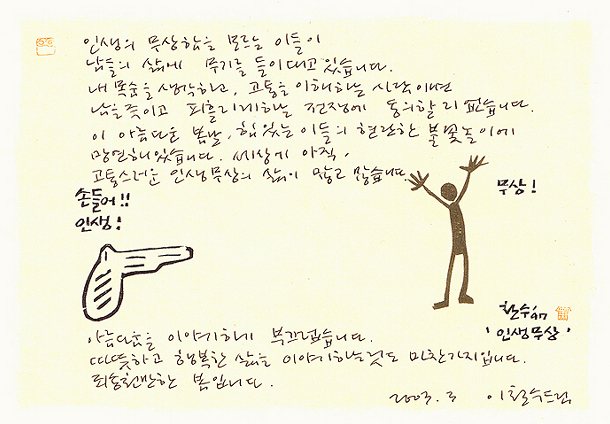 인생의 무상함을 모르는 이들이
남들의 삶에 무기를 들이대고 있습니다.
내 목숨을 생각하고, 고통을 이해하는 사람이면
남을 죽이고 피흘리게하는 전쟁에 동의할 리 없습니다.
이 아름다운 봄날, 힘 있는 이들의 현란한 불꽃놀이에
망연해 있습니다. 세상에 아직,
고통스러운 인생무상의 삶이 많고 많습니다.
손들어!!
인생!
무상!
철수 '97
'인생무상'
아름다움을 이야기하기 부끄럽습니다.
따뜻하고 행복한 삶을 이야기하는 것도 마찬가지입니다.
죄송천만한 봄입니다.
2003. 3 이철수 드림